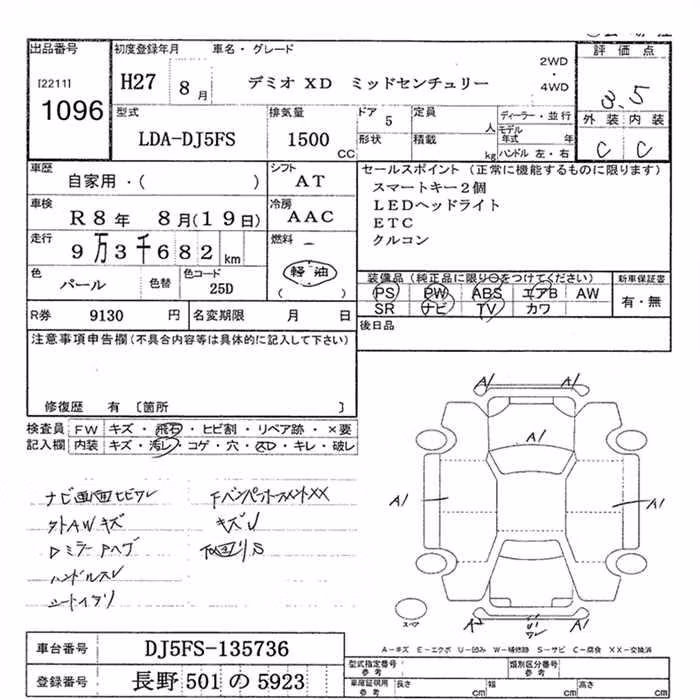 出品番号 初度登録年月 車名・グレード 評価点
[2211] H27 8月 デミオ XD ミッドセンチュリー 2WD・4WD 3.5
1096 外装 内装
型式 排気量 ドア 5 定員 人 ディーラー・並行 C C
LDA-DJ5FS 1500 CC 形状 積載 kg モデル年式 年
ハンドル 左・右
車歴 シフト セールスポイント (正常に機能するものに限ります)
自家用・( ) AT スマートキー2個
車検 冷房 LEDヘッドライト
R8年 8月(19日) AAC ETC
走行 燃料 クルコン
9万3千682km 軽油
色 色替 色コード ( ) 装備品 (純正品に限り○をつけてください) 新車保証書
パール 25D PS PW ABS エアB AW 有・無
R券 9130 円 名変期限 月 日 SR ナビ TV カワ
注意事項申告欄(不具合内容等は具体的に記入して下さい) 後日品
修復歴 有 〔箇所 〕
検査員 FW キズ・飛石・ヒビ割・リペア跡・×要
記入欄 内装 キズ・汚レ・コゲ・穴・スD・キレ・破レ
A1 A1
A1
A1 A1
ナビ画面ヒビワレ
外AWキズ キズ
ハンドルスレ
スペア
車台番号 DJ5FS-135736
A-キズ E-エクボ U-凹み W-補修跡 S-サビ C-腐食 XX-交換済
登録番号 長野 501 の 5923
型式指定番号 参考 類別区分番号 参考
車庫証明用 参考 長さ cm 幅 cm 高さ cm